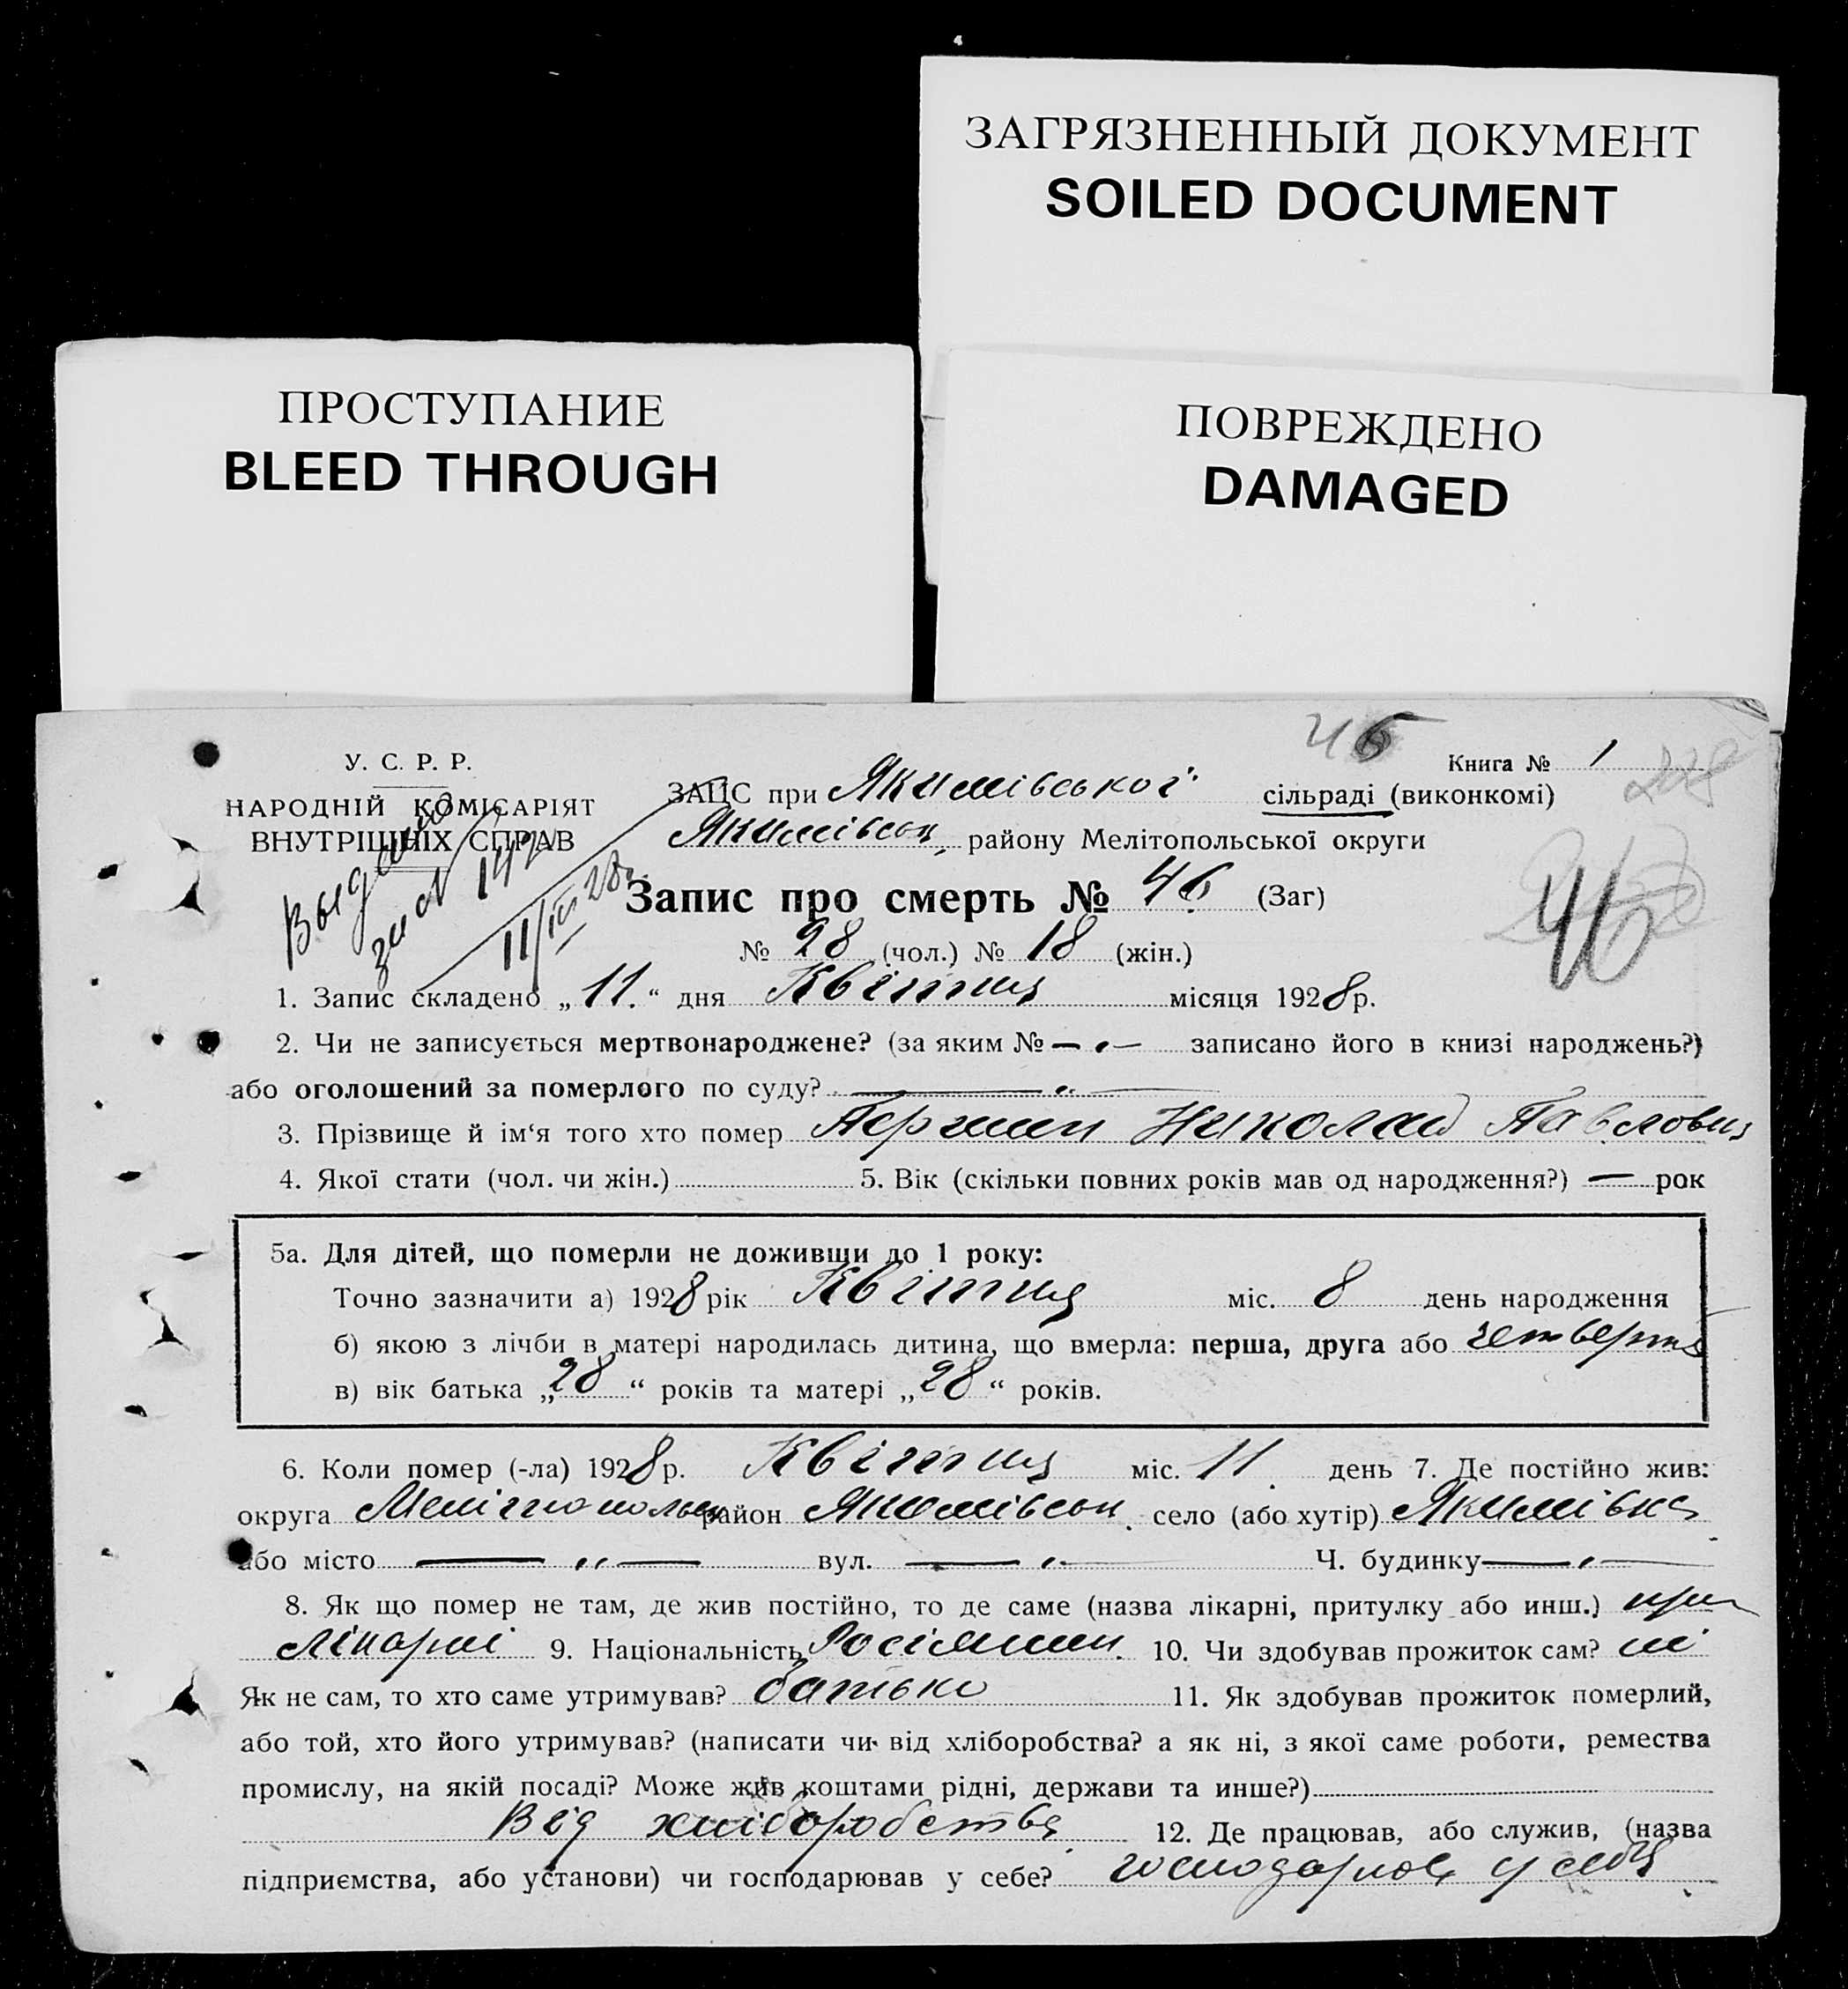 ЗАГРЯЗНЕННЫЙ ДОКУМЕНТ
SOILED DOCUMENT
ПРОСТУПАНИЕ
BLEED THROUGH
ПОВРЕЖДЕНО
DAMAGED
У. С. Р. Р.
НАРОДНІЙ КОМІСАРІЯТ
ВНУТРІШНІХ СПРАВ
46
Книга № 1
ЗАЦС при Якимівської сільраді (виконкомі)
Якимівськ. району Мелітопольської округи
46
Запис про смерть № 46 (Заг)
№ 28 (чол.) № 18 (жін.)
1. Запис складено „ 11. “ дня Квітня місяця 1928 р.
2. Чи не записується мертвонароджене? (за яким № — „ — записано його в книзі народжень?)
або оголошений за померлого по суду? — „ —
3. Прізвище й ім‘я того хто помер Николай Павлович
4. Якої стати (чол. чи жін.) 5. Вік (скільки повних років мав од народження?) — рок
5а. Для дітей, що померли не доживши до 1 року:
Точно зазначити а) 1928 рік Квітня міс. 8 день народження
б) якою з лічби в матері народилась дитина, що вмерла: перша, друга або четверта
в) вік батька „ 28 “ років та матері „ 28 “ років.
6. Коли помер (-ла) 1928 р. Квітня міс. 11 день 7. Де постійно жив:
округа Мелітопольськ район Якимівськ. село (або хутір) Якимівка
або місто — „ — вул. — „ — Ч. будинку — „ —
8. Як що помер не там, де жив постійно, то де саме (назва лікарні, притулку або инш.) при
лікарні 9. Національність Росіянин. 10. Чи здобував прожиток сам? ні
Як не сам, то хто саме утримував? батько 11. Як здобував прожиток померлий,
або той, хто його утримував? (написати чи від хліборобства? а як ні, з якої саме роботи, ремества
промислу, на якій посаді? Може жив коштами рідні, держави та инше?)
Від хліборобства 12. Де працював, або служив, (назва
підприємства, або установи) чи господарював у себе? господарював у себе